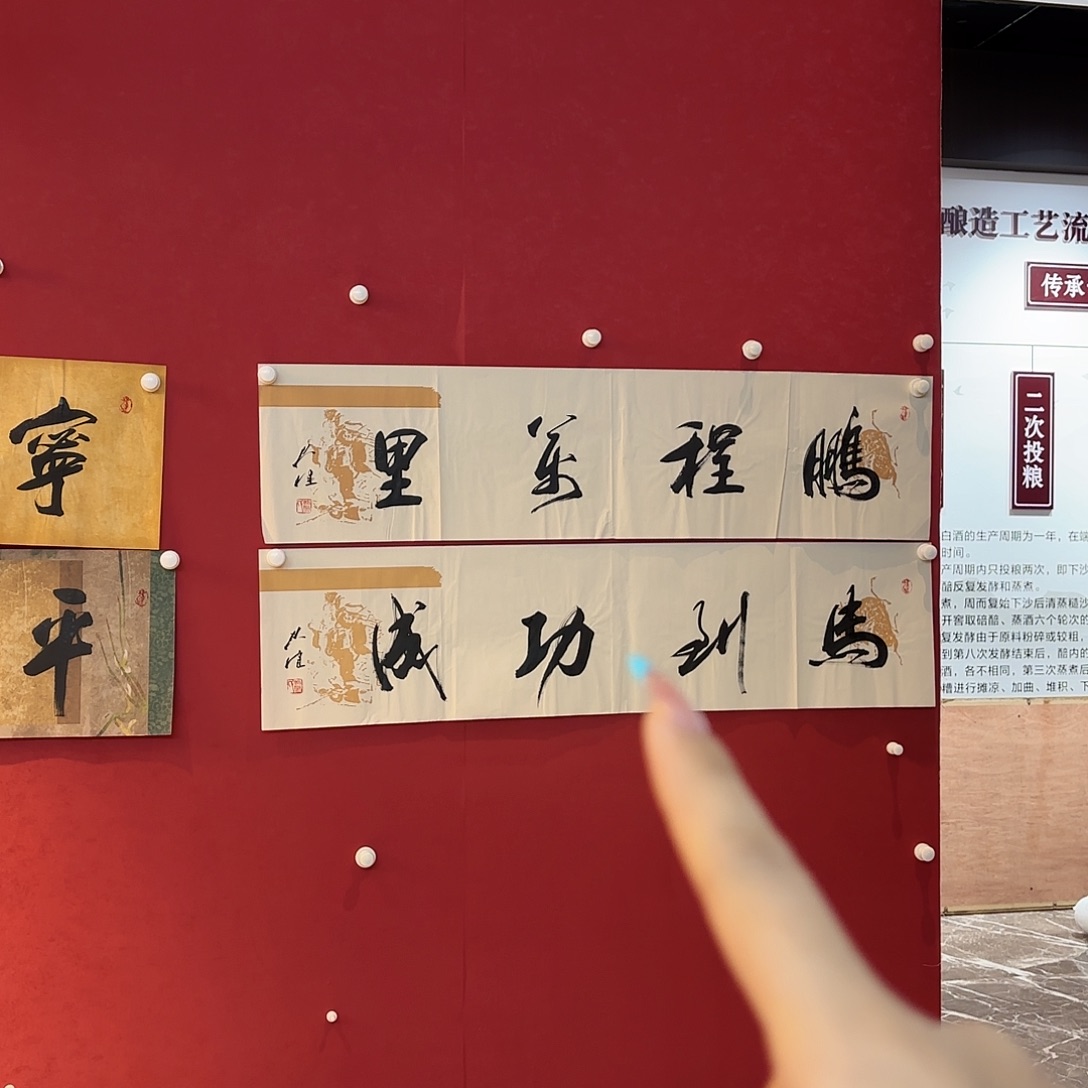 鵬程萬里
馬到功成
寧
平
酿造工艺流
传承
二次投粮
白酒的生产周期为一年，在端
时间。
产周期内只投粮两次，即下沙
醅反复发酵和蒸煮。
煮，周而复始下沙后清蒸糙沙
开窖取碚醅、蒸酒六个轮次的
复发酵由于原料粉碎或较粗，
到第八次发酵结束后，醅内的
酒，各不相同，第三次蒸煮后
槽进行摊凉、加曲、堆积、下